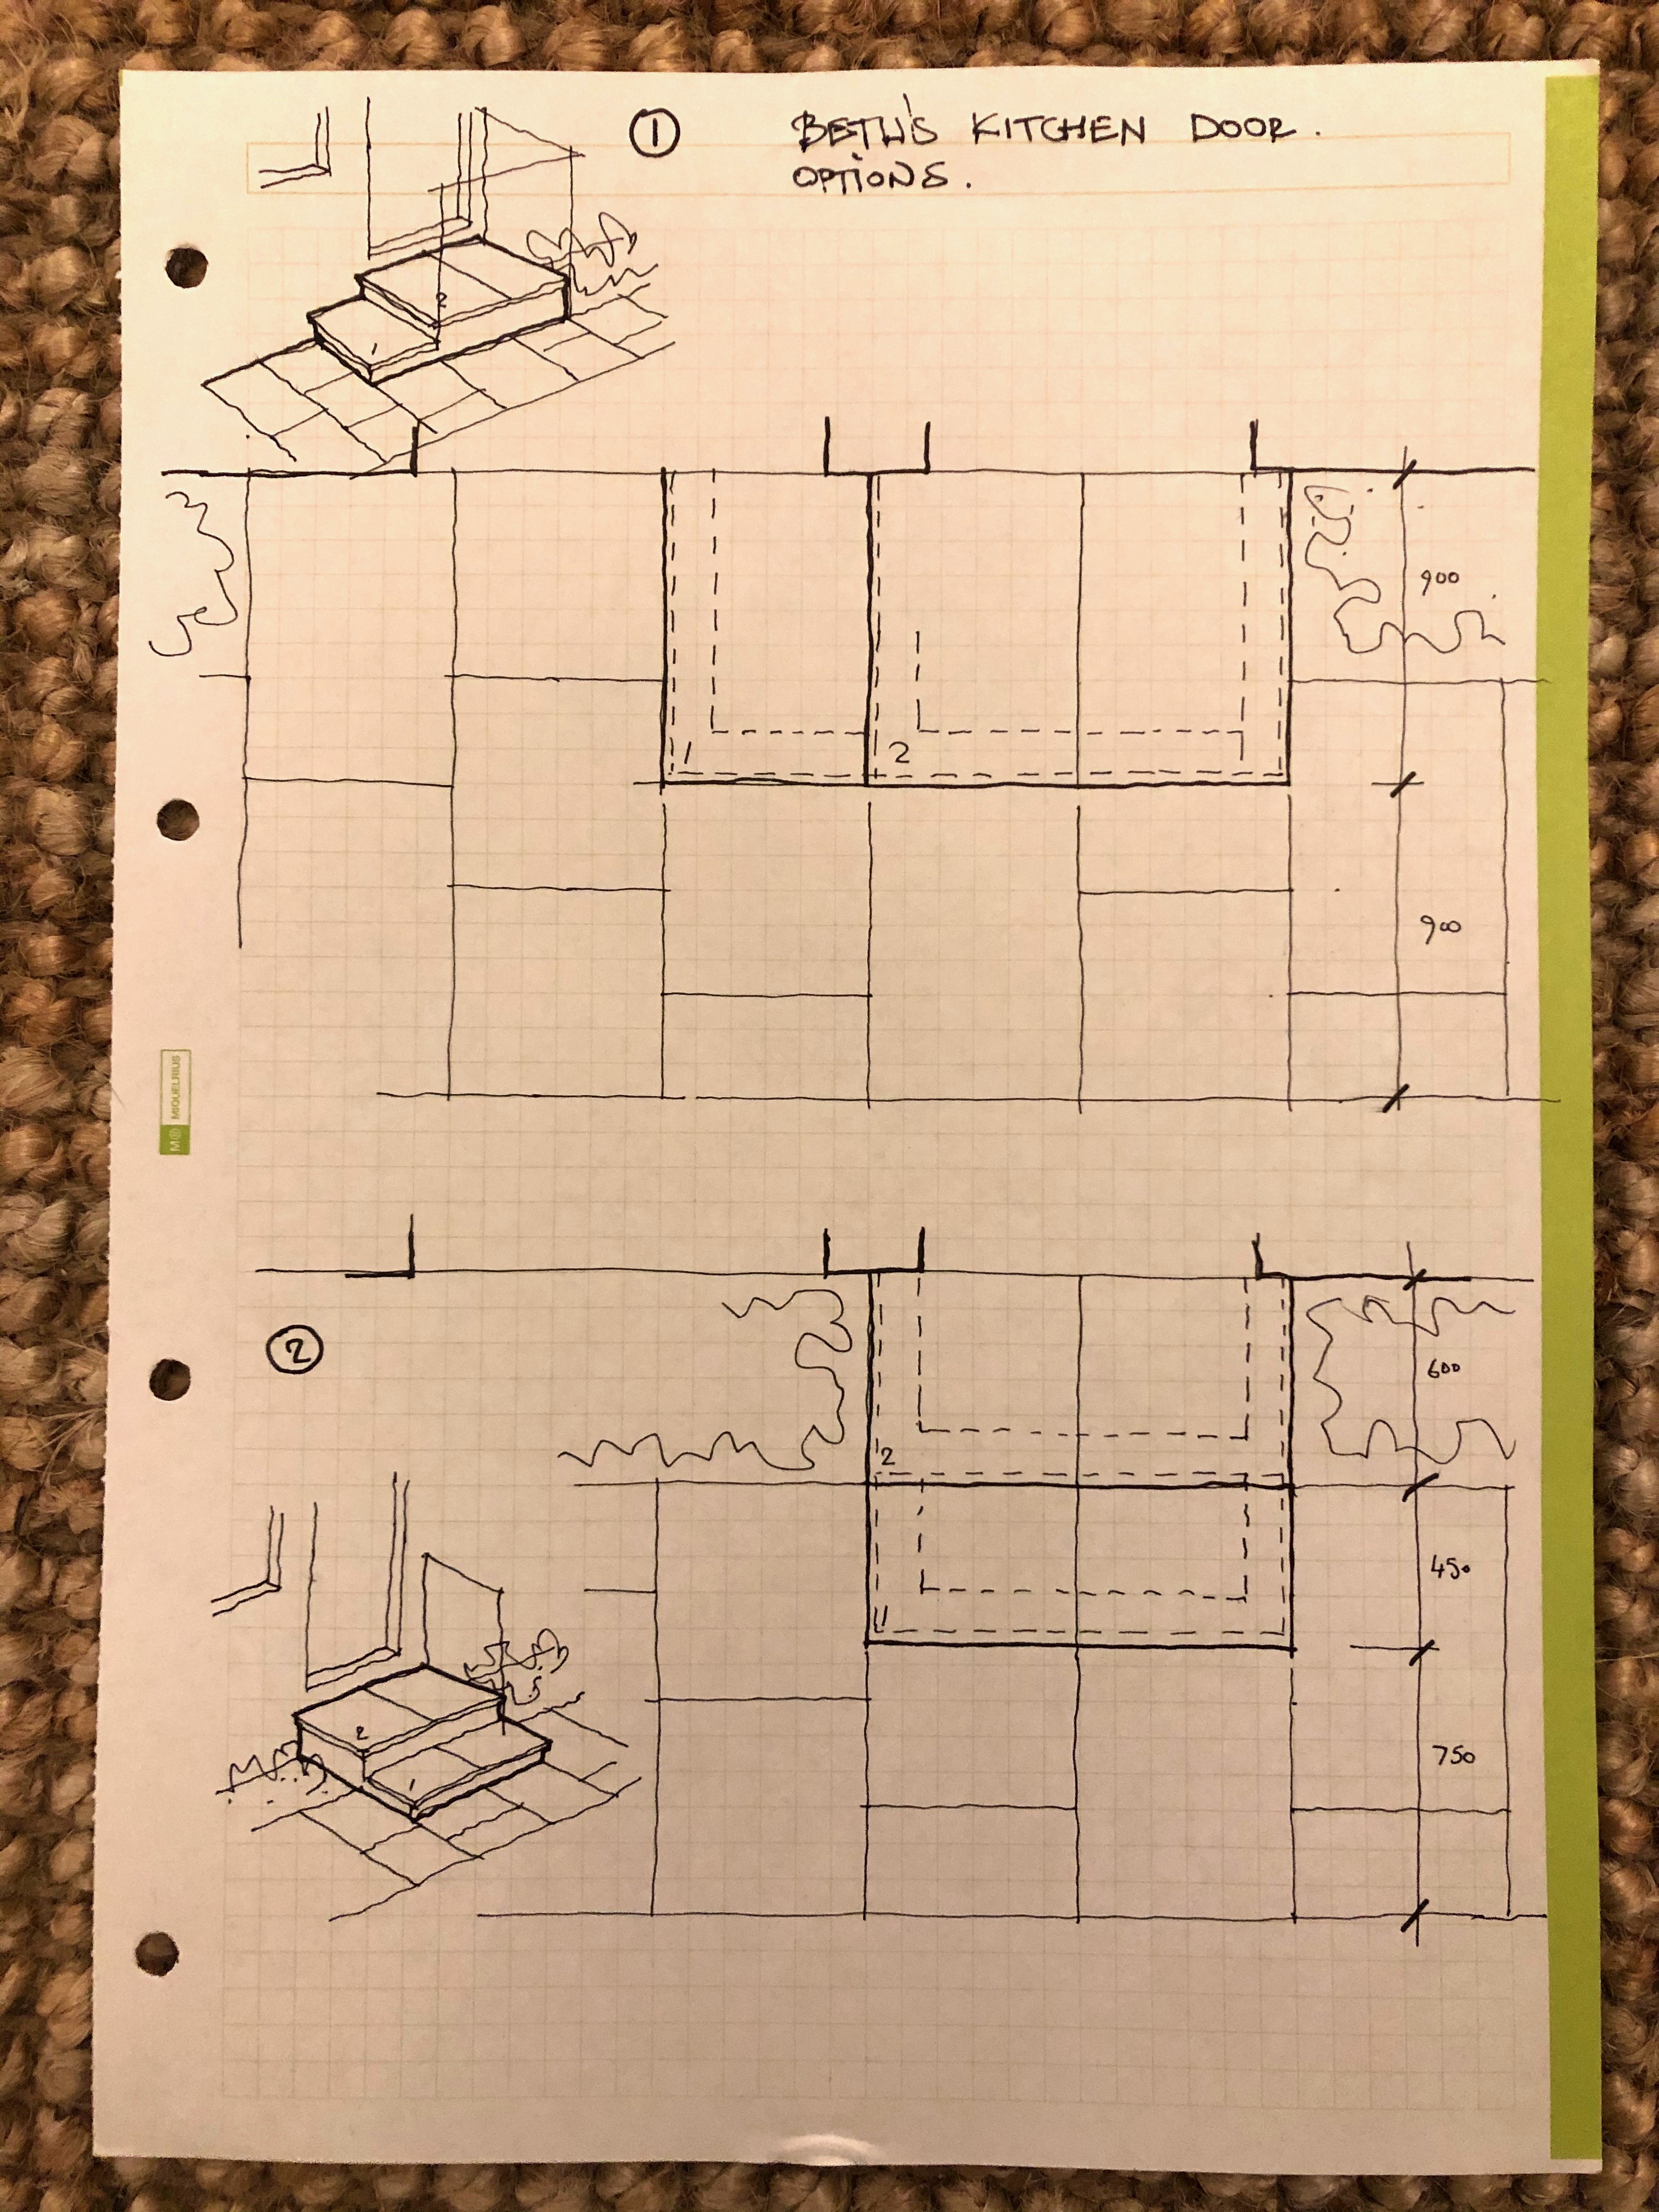 1
BETH'S KITCHEN DOOR.
OPTIONS.
2
1
900
1
2
900
MIQUELRIUS
2
600
2
450
1
2
1
750